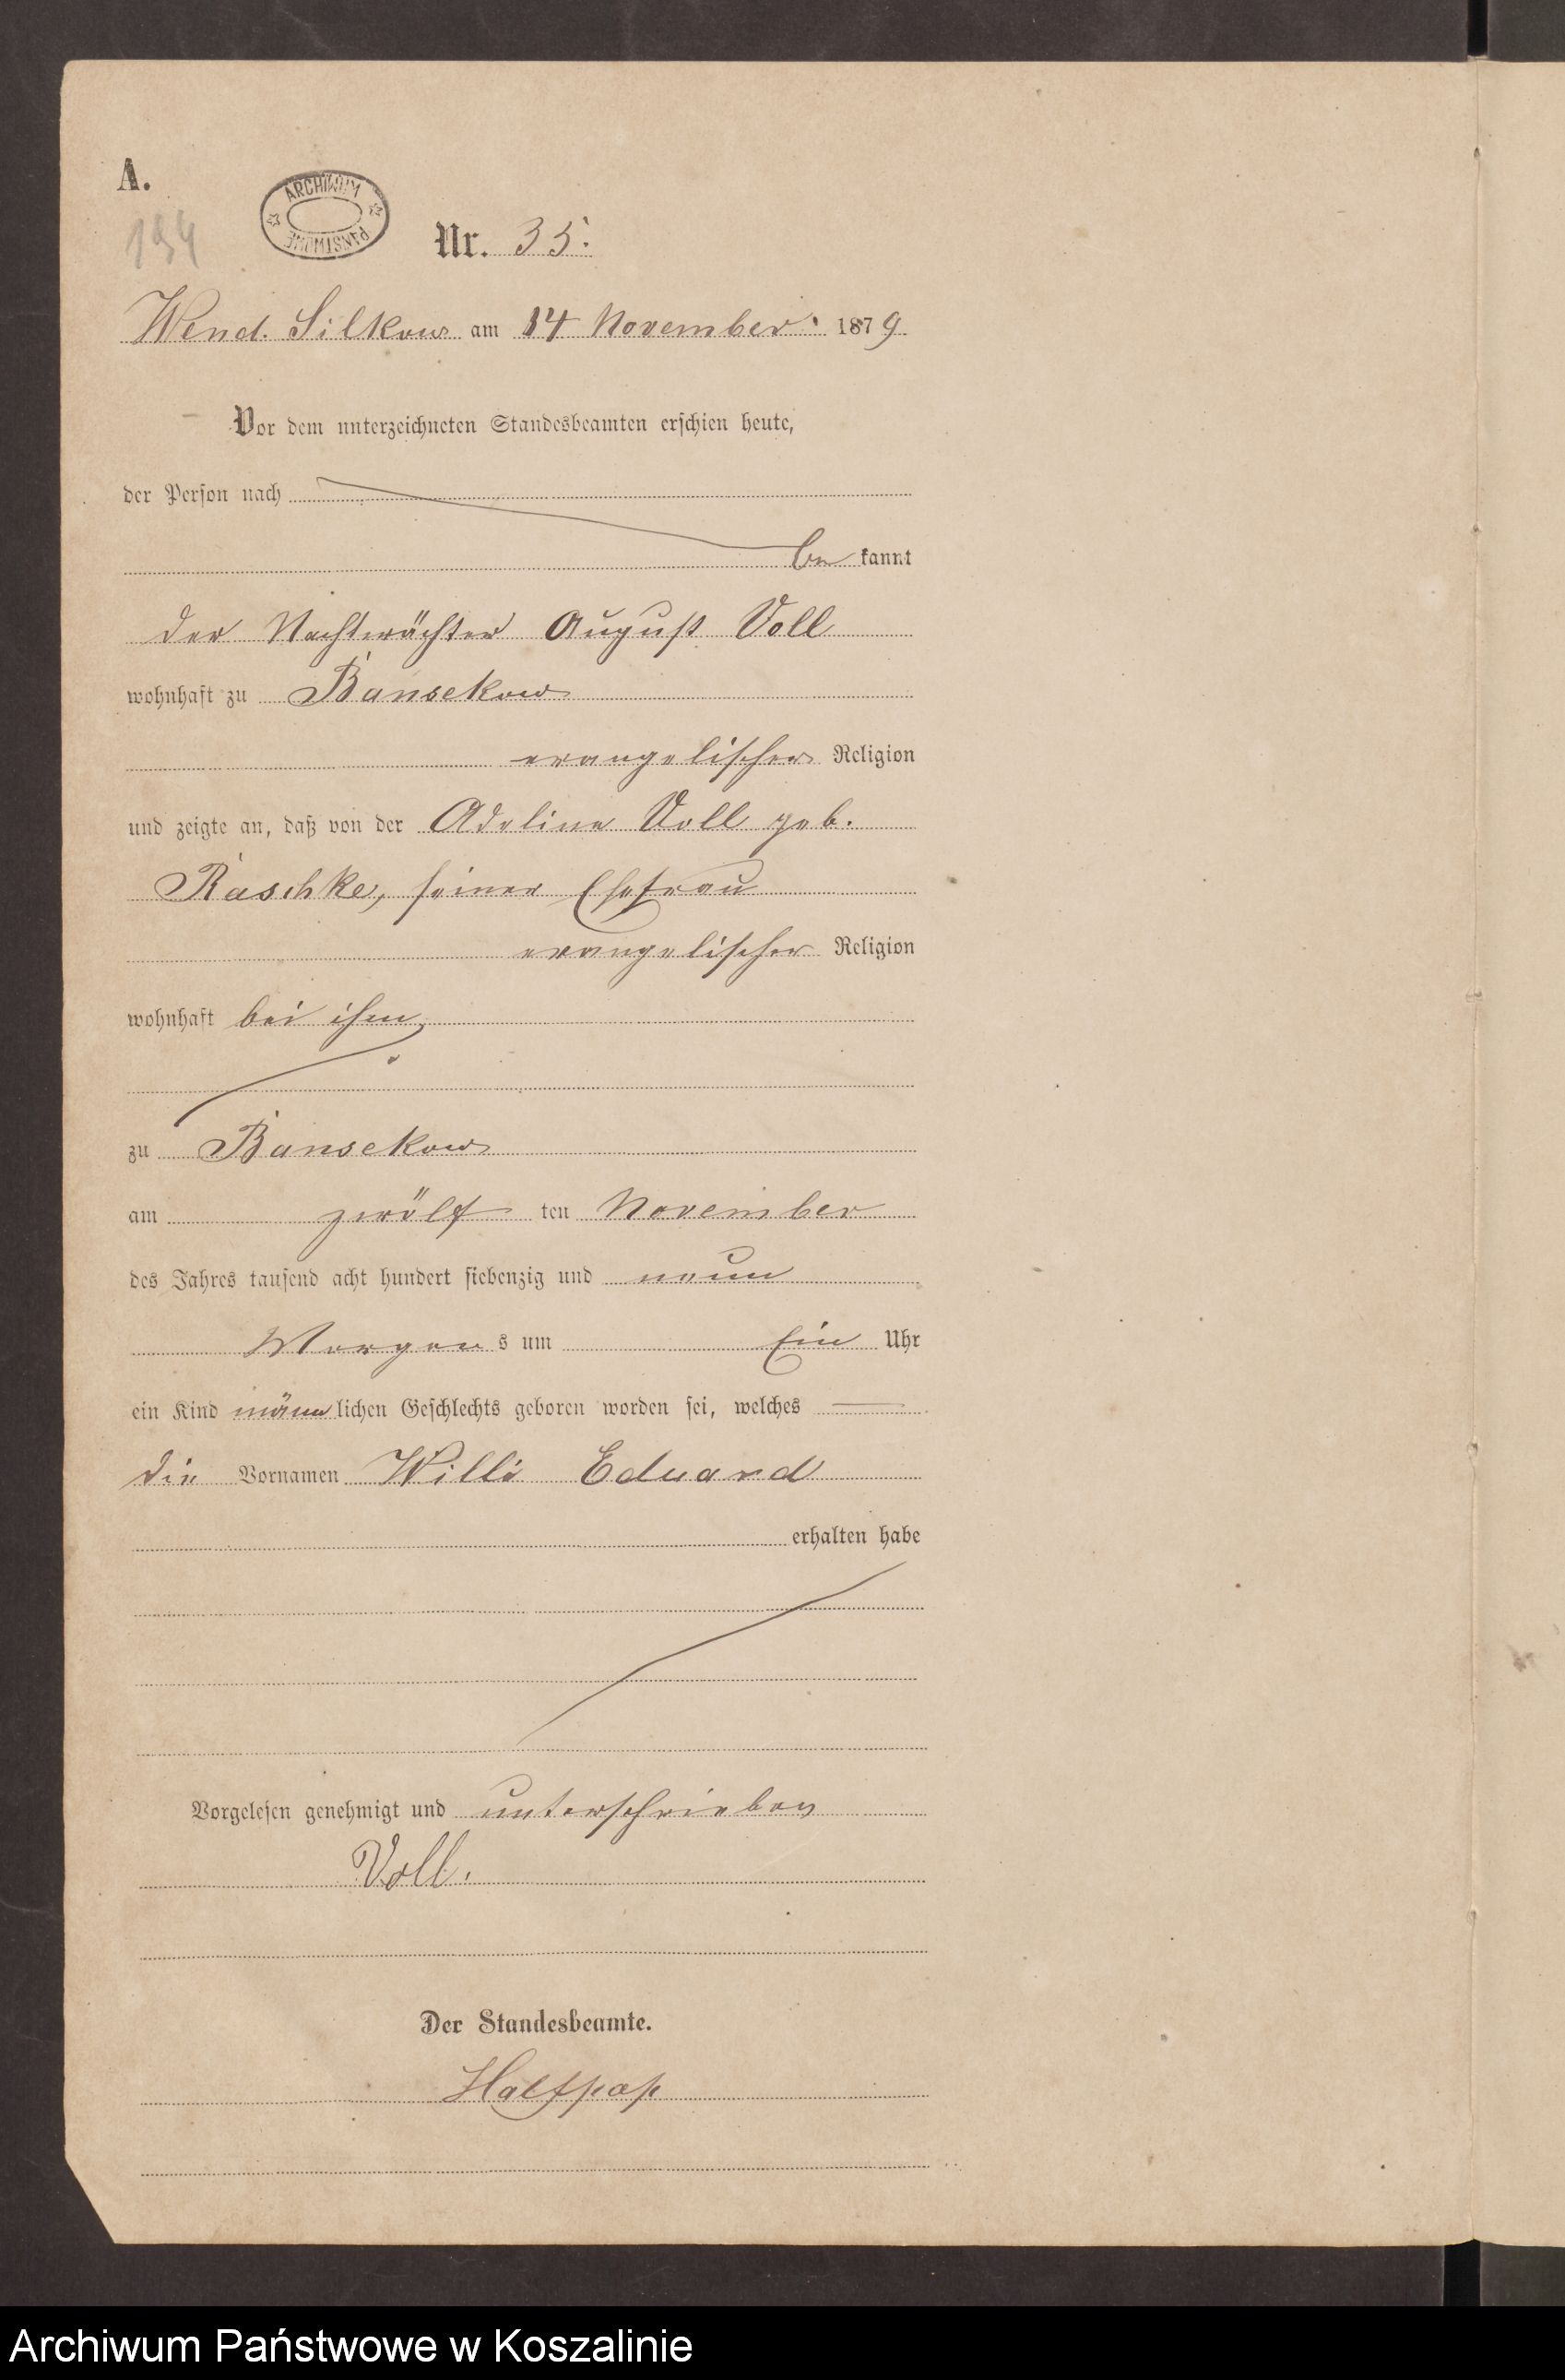 A.
194
ARCHIWUM
PAŃSTWOWE
Nr. 35.
Wend. Silkow am 14 November 1879
Vor dem unterzeichneten Standesbeamten erschien heute,
der Person nach
be kannt
der Nachtwächter August Voll
wohnhaft zu Bansekow
evangelischer Religion
und zeigte an, daß von der Adeline Voll geb.
Raschke, seiner Ehefrau
evangelischer Religion
wohnhaft bei ihm
zu Bansekow
am zwölf ten November
des Jahres tausend acht hundert siebenzig und neun
Morgen s um Ein Uhr
ein Kind männ lichen Geschlechts geboren worden sei, welches
die Vornamen Willi Eduard
erhalten habe
Vorgelesen genehmigt und unterschrieben
Voll.
Der Standesbeamte.
Halfpap
Archiwum Państwowe w Koszalinie